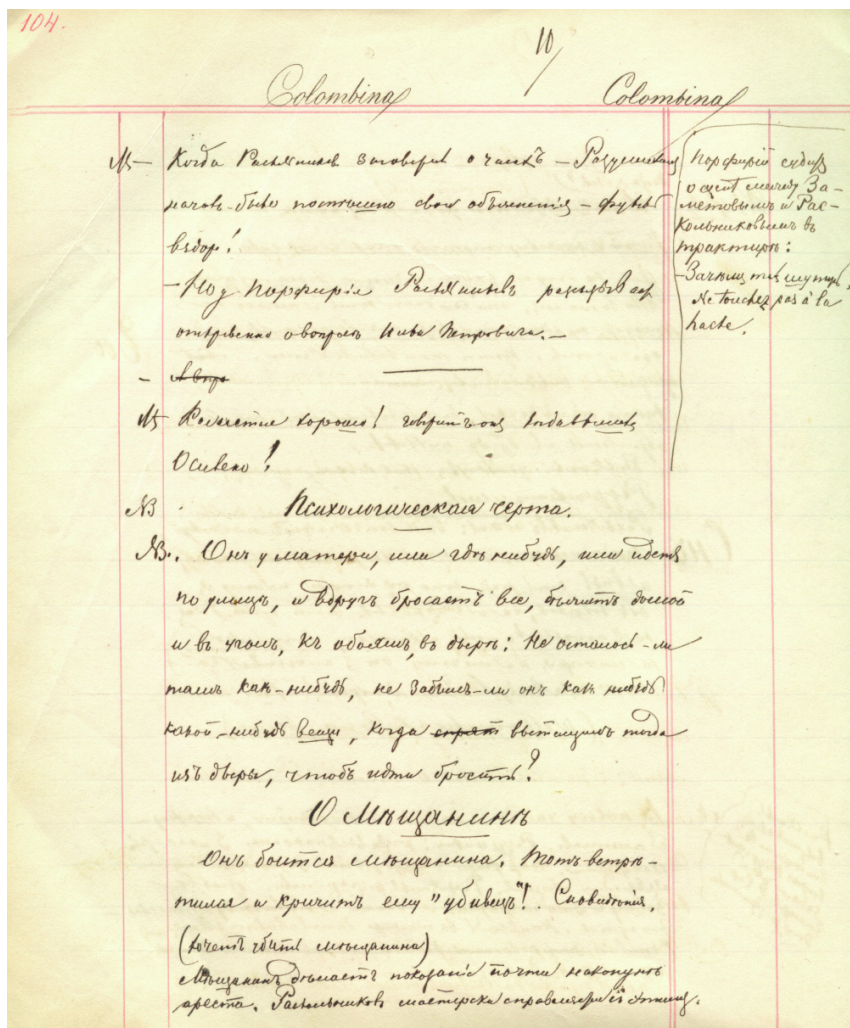 104.
10/
Colombina Colombina
Когда Раскольников заговорил о часахъ — Разумихинъ
началъ-было поспешно свои объясненія — фу ты
вздоръ!
— Порфирія Раскольниковъ
откровенно о вопросѣ Ильи Петровича. —
NB хорошо! говоритъ онъ
NB Психологическая черта.
NB. Онъ у матери, или гдѣ нибудь, или идетъ
по улицѣ, и вдругъ бросаетъ все, бѣжитъ домой
и въ уголъ, къ обоямъ, въ дыру: Не осталось-ли
тамъ какъ-нибудь, не забылъ-ли онъ какъ нибудь
какой-нибудь вещи, когда спрят вытащилъ тогда
изъ дыры, чтобъ идти бросать?
О Мѣщанинѣ
Онъ боится мѣщанина. Тотъ встрѣ-
тился и кричитъ ему "убивецъ"! Сновидѣнія.
(хочетъ убить мѣщанина)
Мѣщанинъ дѣлаетъ показаніе почти наканунѣ
ареста. Раскольниковъ мастерски
Порфирій
о сценѣ между За-
метовымъ и Рас-
кольниковымъ въ
трактирѣ:
— Зачѣмъ такъ шутить,
Ne touchez pas à la
hache.